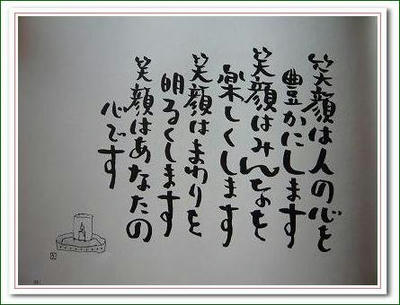 笑顔は人の心を
豊かにします
笑顔はみんなを
楽しくします
笑顔はまわりを
明るくします
笑顔はあなたの
心です